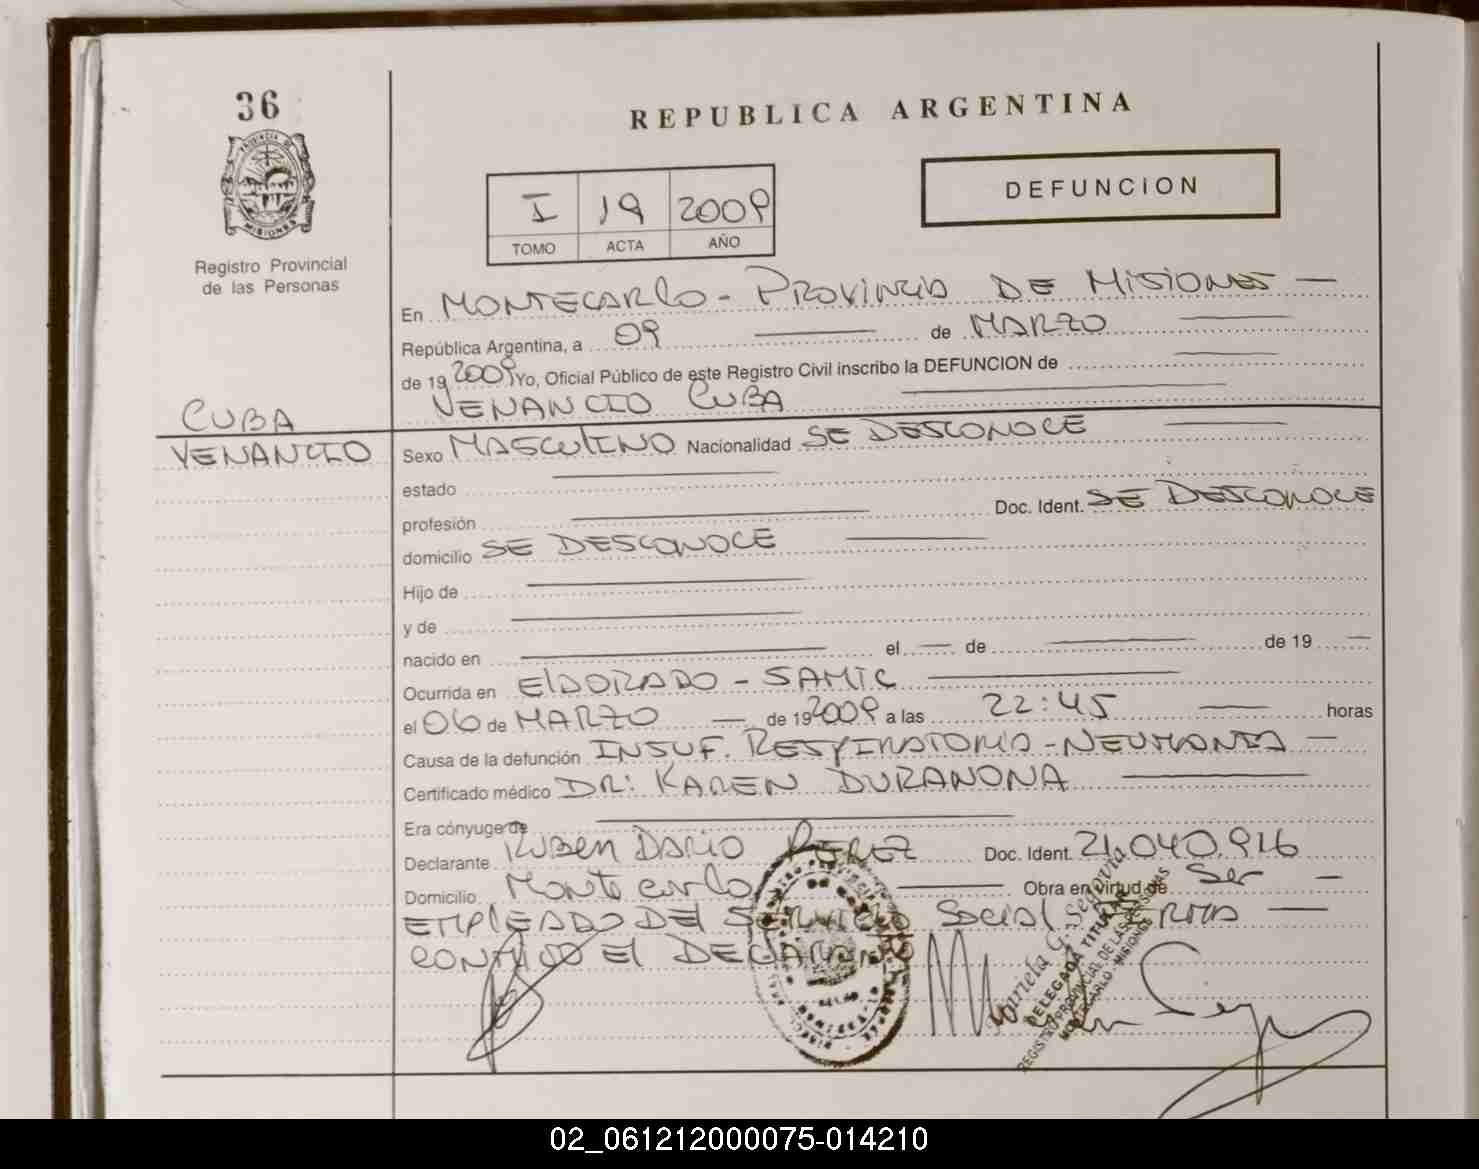 36
REPUBLICA ARGENTINA
PROVINCIA DE
MISIONES
Registro Provincial
de las Personas
I 19 2009
TOMO ACTA AÑO
DEFUNCION
En MONTECARLO - PROVINCIA DE MISIONES —
República Argentina, a 09 — de MARZO —
de 19 2009 Yo, Oficial Público de este Registro Civil inscribo la DEFUNCION de —
VENANCIO CUBA —
CUBA
VENANCIO
Sexo MASCULINO Nacionalidad SE DESCONOCE —
estado —
profesión — Doc. Ident. SE DESCONOCE
domicilio SE DESCONOCE —
Hijo de —
y de —
nacido en — el — de — de 19 —
Ocurrida en ELDORADO - SAMIC —
el 06 de MARZO — de 19 2009 a las 22:45 — horas
Causa de la defunción INSUF. RESPIRATORIA - NEUMONIA —
Certificado médico DR: KAREN DURANONA —
Era cónyuge de —
Declarante RUBEN DARIO PEREZ Doc. Ident. 21.040.916
Domicilio Montecarlo — Obra en virtud de Ser —
EMPLEADO DEL SERVICIO Social FIRMA —
CONMIGO El DECLARANTE
Mariela G. Segovia
DELEGADA TITULAR
REGISTRO PROVINCIAL DE LAS PERSONAS
MONTECARLO - MISIONES
02_061212000075-014210